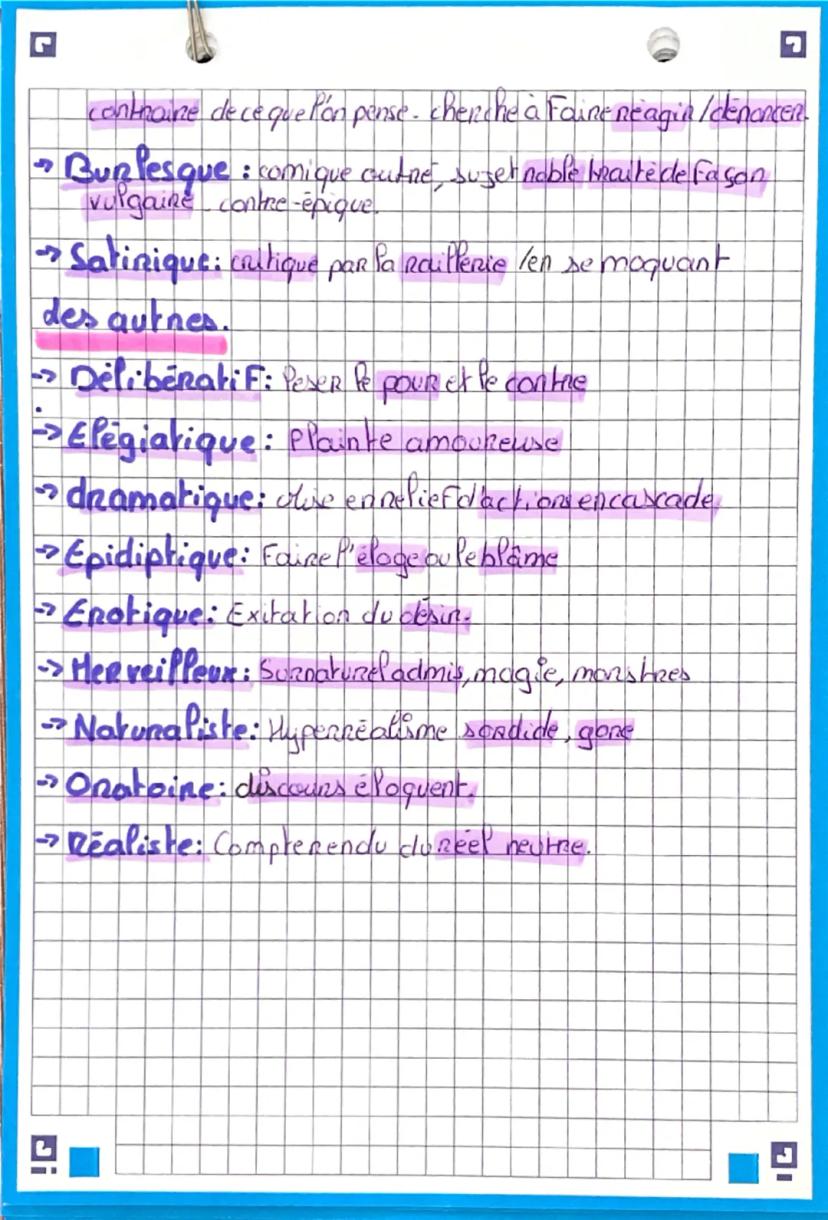 contraire de ce que l'on pense. cherche à Faire réagir / dénoncer.
→ Burlesque : comique outré, sujet noble traité de Façon
vulgaire contre-épique.
→ Satirique : critique par la raillerie / en se moquant
des autres.
→ DélibératiF : Peser le pour et le contre
→ Elégiatique : Plainte amoureuse
→ dramatique : Mise en relieF d'actions en cascade
→ Epidiptique : Faire l'éloge ou le blâme
→ Erotique : Exitation du désir.
→ Merveilleux : Surnaturel admis, magie, monstres
→ Naturaliste : Hyperréalisme sordide, gore
→ Oratoire : discours éloquent.
→ Réaliste : Compte rendu du réel neutre.